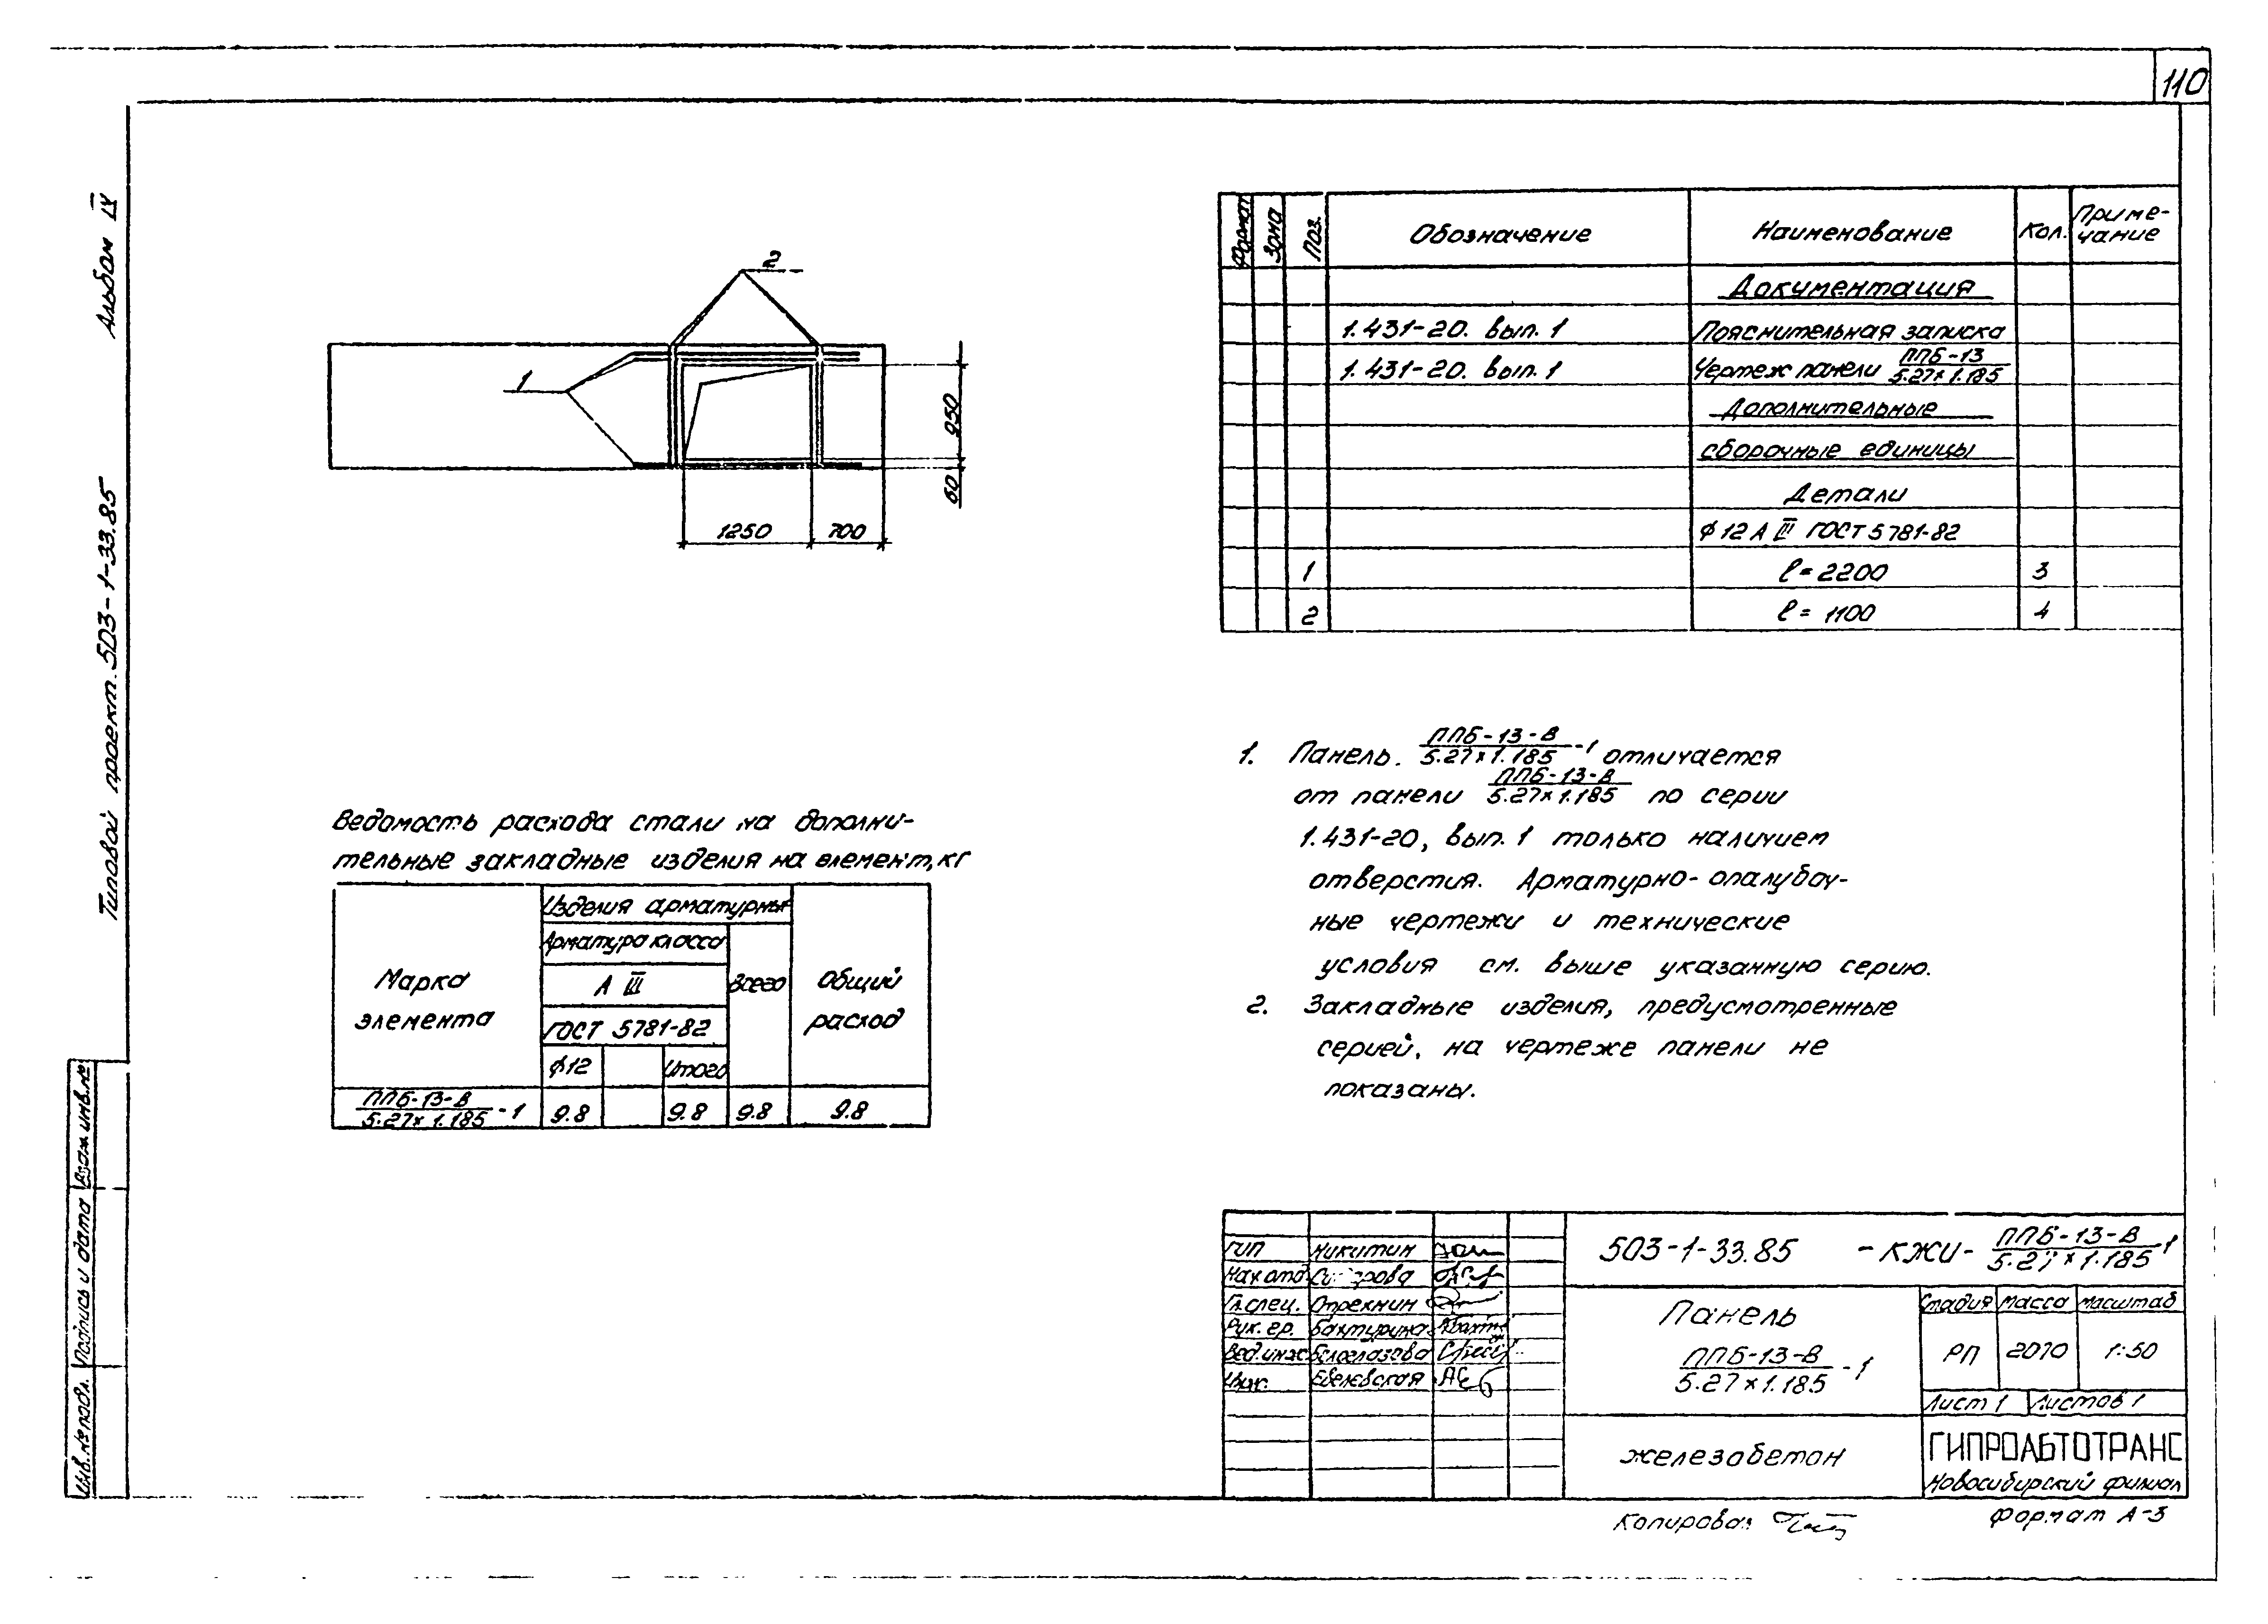 110
Альбом IV
Типовой проект. 503-1-33.85
Взам. инв. №
Подпись и дата
Инв. № подл.
2
1
950
60
1250
700
Формат Зона Поз. Обозначение Наименование Кол. Приме-
чание
Документация
1.431-20. вып. 1 Пояснительная записка
1.431-20. вып. 1 Чертеж панели ППБ-13
5.27×1.185
Дополнительные
сборочные единицы
Детали
ϕ 12 А III ГОСТ 5781-82
1 ℓ = 2200 3
2 ℓ = 1100 4
1. Панель. ППБ-13-В
5.27×1.185 -1 отличается
от панели ППБ-13-В
5.27×1.185 по серии
1.431-20, вып. 1 только наличием
отверстия. Арматурно-опалубоч-
ные чертежи и технические
условия см. выше указанную серию.
2. Закладные изделия, предусмотренные
серией, на чертеже панели не
показаны.
Ведомость расхода стали на дополни-
тельные закладные изделия на элемент, кг
Марка
элемента
Изделия арматурны
Арматура класса
А III
ГОСТ 5781-82
ϕ12 Итого
Всего
Общий
расход
ППБ-13-В
5.27×1.185 -1 9.8 9.8 9.8 9.8
ГИП Никитин
Нач. отд.
Гл. спец. Отрехнин
Рук. гр. Бахтурина
Вед. инж. Белоглазова
Инж.
503-1-33.85 -КЖИ- ППБ-13-В
5.27×1.185 -1
Панель
ППБ-13-В
5.27×1.185 -1
Стадия Масса Масштаб
РП 2070 1:50
Лист 1 Листов 1
железобетон
ГИПРОАВТОТРАНС
Новосибирский филиал
Копировал
Формат А-3